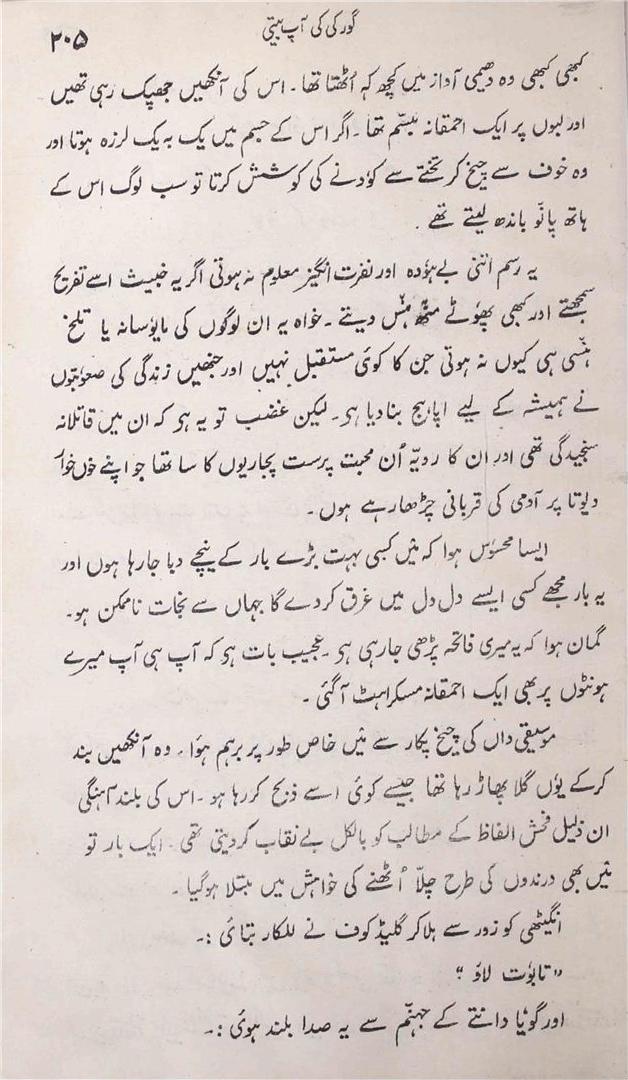 گورکی کی آپ بیتی
۲۰۵
کبھی کبھی وہ دھیمی آواز میں کچھ کہ اُٹھتا تھا۔ اس کی آنکھیں جھپک رہی تھیں
اور لبوں پر ایک احمقانہ تبسّم تھا۔ اگر اس کے جسم میں یک بہ یک لرزہ ہوتا اور
وہ خوف سے چیخ کر تختے سے کوٗدنے کی کوشش کرتا تو سب لوگ اس کے
ہاتھ پانْو باندھ لیتے تھے۔
یہ رسم اتنی بےہوٗدہ اور نفرت انگیز معلوم نہ ہوتی اگر یہ خبیث اسے تفریح
سمجھتے اور کبھی پھوٗٹے منْھ ہنْس دیتے۔ خواہ یہ ان لوگوں کی مایوٗسانہ یا تلخ
ہنْسی ہی کیوں نہ ہوتی جن کا کوئی مستقبل نہیں اور جنھیں زندگی کی صعوٗبتوں
نے ہمیشہ کے لیے اپاہج بنا دیا ہو۔ لیکن غضب تو یہ ہو کہ ان میں قاتلانہ
سنجیدگی تھی اور ان کا رویّہ اُن محبت پرست پجاریوں کا سا تھا جو اپنے خوں خوار
دیوتا پر آدمی کی قربانی چڑھا رہے ہوں۔
ایسا محسوٗس ہوا کہ میْں کسی بہت بڑے بار کے نیچے دبا جا رہا ہوں اور
یہ بار مجھے کسی ایسے دل دل میں غرق کر دے گا جہاں سے نجات ناممکن ہو۔
گمان ہوا کہ یہ میری فاتحہ پڑھی جا رہی ہو۔ عجیب بات ہو کہ آپ ہی آپ میرے
ہونٹوں پر بھی ایک احمقانہ مسکراہٹ آگئی۔
موسیقی داں کی چیخ پکار سے میْں خاص طور پر برہم ہوٗا۔ وہ آنکھیں بند
کرکے یوٗں گلا پھاڑ رہا تھا جیسے کوئی اسے ذبح کر رہا ہو۔ اس کی بلند آہنگی
ان ذلیل فحش الفاظ کے مطالب کو بالکل بےنقاب کر دیتی تھی۔ ایک بار تو
میْں بھی درندوں کی طرح چلّا اُٹھنے کی خواہش میں مبتلا ہوگیا۔
انگیٹھی کو زور سے ہلا کر گلیڈکوف نے للکار بتائی :۔
"تابوٗت لاؤ"
اور گویا دانتے کے جہنّم سے یہ صدا بلند ہوئی :۔